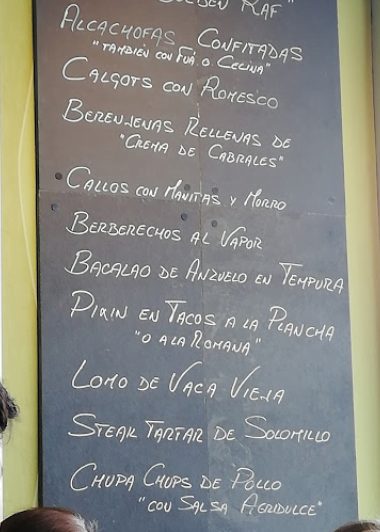 "GOLDEN RAF"
ALCACHOFAS CONFITADAS
"TAMBIÉN CON FUÁ O CECINA"
CALÇOTS CON ROMESCO
BERENJENAS RELLENAS DE
"CREMA DE CABRALES"
CALLOS CON MANITAS Y MORRO
BERBERECHOS AL VAPOR
BACALAO DE ANZUELO EN TEMPURA
PIXIN EN TACOS A LA PLANCHA
"O A LA ROMANA"
LOMO DE VACA VIEJA
STEAK TARTAR DE SOLOMILLO
CHUPA CHUPS DE POLLO
"CON SALSA AGRIDULCE"